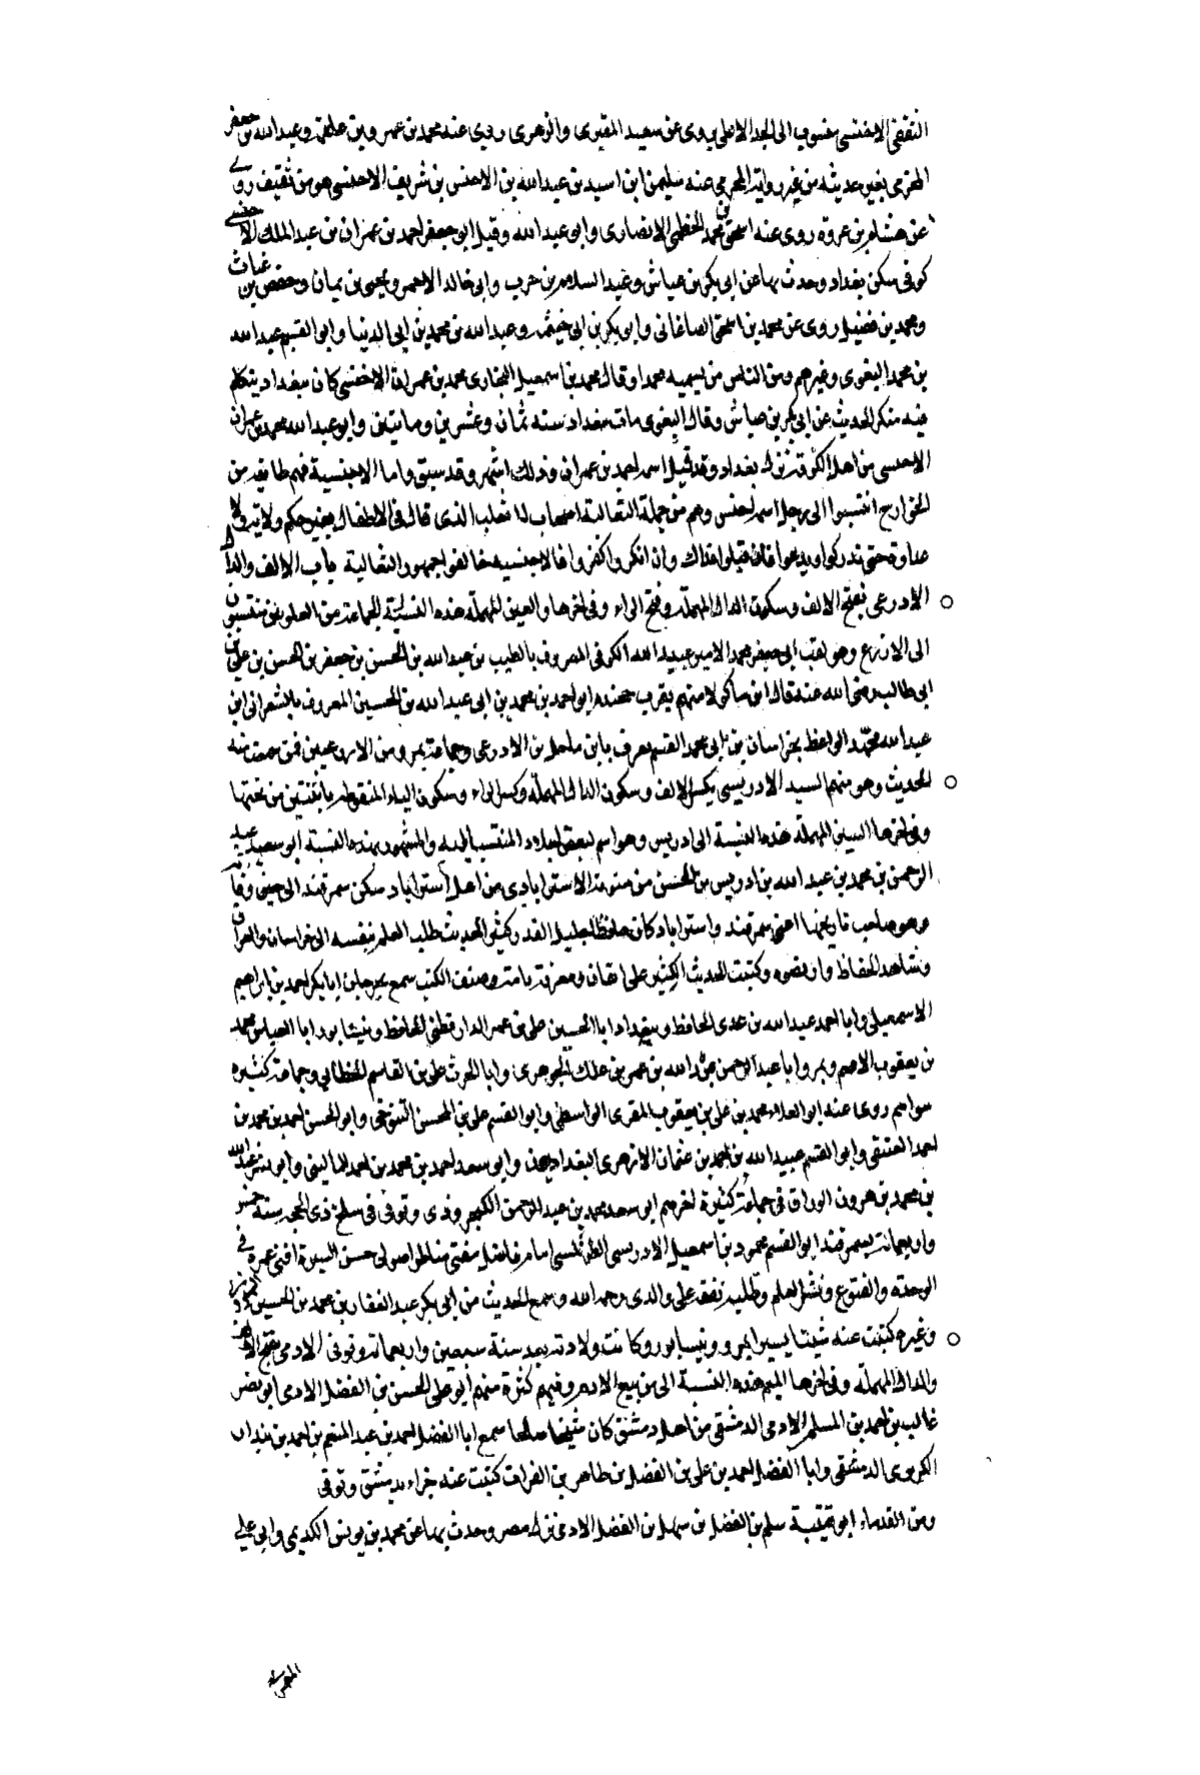 الثقفى الاخنسى منسوب الى الجد الاعلى يروى عن سعيد المقبرى والزهرى روى عنه محمد بن عمرو بن علقمة وعبد الله بن جعفر
المخرمى بغير حديثه من غير رواية المخرمى عنه سليمن ابن اسيد بن عبد الله بن الاخنس بن شريف الاخنسى هو من ثقيف روى
عن هشام بن عروة روى عنه اسحق بن محمد الخطمى الانصارى وابو عبد الله وقيل ابو جعفر احمد بن عمران بن عبد الملك الاخنسى
كوفى سكن بغداد وحدث بها عن ابى بكر بن عياش وعبد السلام بن حرب وابى خالد الاحمر ويحيى بن يمان وحفص بن غياث
ومحمد بن فضيل روى عن محمد بن اسحق الصاغانى وابو بكر بن ابى خيثمة وعبد الله بن محمد بن ابى الدنيا وابو القسم عبد الله
بن محمد البغوى وغيرهم ومن الناس من يسميه محمدا وقال محمد بن اسمعيل البخارى محمد بن عمران الاخنسى كان ببغداد يتكلم
فيه منكر الحديث عن ابى بكر بن عياش وقال البغوى مات ببغداد سنة ثمان وعشرين ومايتين وابو عبد الله محمد بن عمران
الاخنسى من اهل الكوفة نزل بغداد وقد قيل اسمه احمد بن عمران وذلك اشهر وقد سبق واما الاخنسية فهم طايفة من
الخوارج انتسبوا الى رجل اسمه اخنس وهم من جملة الثعالبة اصحاب ثعلب الذى قال فى الاطفال بغير حكم ولا
عداوة حتى يدركوا ويدعوا فان قبلوا فذاك وان انكروا كفروا فالاخنسية خالفوا جمهور الثعالبة باب الالف والدال
الادرعى بفتح الالف وسكون الدال المهملة وفتح الراء وفى اخرها العين المهملة هذه النسبة لجماعة من العلويين ينتسبون
الى الادرع وهو لقب ابى جعفر محمد الامير عبيد الله الكوفى المعروف بالطيب بن عبد الله بن الحسن بن جعفر بن الحسن بن على بن
ابى طالب رضى الله عنه قال ابن ماكولا منهم ابو احمد بن محمد بن ابى عبد الله بن الحسين المعروف بالشعرانى ابن
عبد الله محمد الواعظ بخراسان بن ابى محمد القسم يعرف بابن الادرعى وجماعة بمرو من الادرعيين فمن سمعت منه
الحديث وهو منهم السيد الادريسى بكسر الالف وسكون الدال المهملة وكسر الراء وسكون الياء المنقوطة باثنتين من تحتها
وفى اخرها السين المهملة هذه النسبة الى ادريس وهو اسم لبعض اجداد المنتسب اليه والمشهور بهذه النسبة ابو سعيد عبد
الرحمن بن محمد بن عبد الله بن ادريس بن الحسن بن متويه الاستراباذى من اهل استراباذ سكن سمرقند الى حين وفاته
وهو صاحب تاريخها اعنى سمرقند واستراباذ كان حافظا جليل القدر كثير الحديث طلب العلم بنفسه الى خراسان والعراق
وشاهد الحفاظ وكتبت الحديث الكثير على اتقان ومعرفة تامة وصنف الكتب سمع بجرجان ابا بكر احمد بن ابراهيم
الاسمعيلى وابا احمد عبد الله بن عدى الحافظ وببغداد ابا الحسين على بن عمر الدارقطنى الحافظ وبنيسابور ابا العباس محمد
بن يعقوب الاصم وبمرو ابا عبد الرحمن عبد الله بن عمر بن علك الجوهرى وابا الحرث على بن القاسم الخطابى وجماعة كثيرة
سواهم روى عنه ابو العلاء محمد بن على بن يعقوب المقرى الواسطى وابو القسم على بن المحسن التنوخى وابو الحسن احمد بن محمد بن
احمد العتيقى وابو القسم عبيد الله بن احمد بن عثمان الازهرى البغداديون وابو سعد احمد بن محمد بن احمد المالينى وابو بشر عبد الله
بن محمد بن هرون الوراق فى جماعة كثيرة اخرهم ابو سعد محمد بن عبد الرحمن الكنجروذى وتوفى فى سلخ ذى الحجة سنة خمس
واربعماية بسمرقند ابو القسم محمود بن اسمعيل الادريسى الطرثيثى امام فاضل مفتى مناظر اصولى حسن السيرة افنى عمره فى
الوحدة والقنوع ونشر العلم وطلبه تفقه على والدى رحمه الله وسمع الحديث من ابى بكر عبد الغفار بن محمد بن الحسين الشيروى
وغيره كتبت عنه شيئا يسيرا بمرو ونيسابور وكانت ولادته بعد سنة سبعين واربعماية وتوفى الادمى بفتح الالف
والدال المهملة وفى اخرها الميم هذه النسبة الى من يبيع الادم وفيهم كثرة منهم ابو على الحسن بن الفضل الادمى ابو نصر
غالب بن احمد بن المسلم الادمى الدمشقى من اهل دمشق كان شيخا صالحا سمع ابا الفضل احمد بن عبد المنعم بن احمد بن بندار
الكريدى الدمشقى وابا الفضل احمد بن على بن الفضل بن طاهر بن الفرات كتبت عنه جزاء بدمشق وتوفى
ومن القدماء ابو قتيبة سلم بن الفضل بن سهل بن الفضل الادمى نزل مصر وحدث بها عن محمد بن يونس الكديمى وابى على